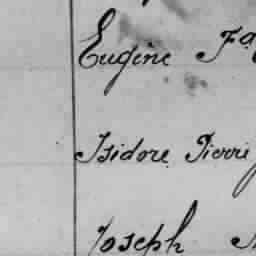 Eugène Fa
Isidore Pierre
Joseph